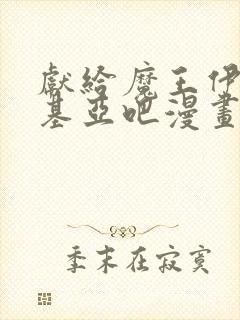 獻給魔王伊
基亞吧漫畫
季末在寂寞